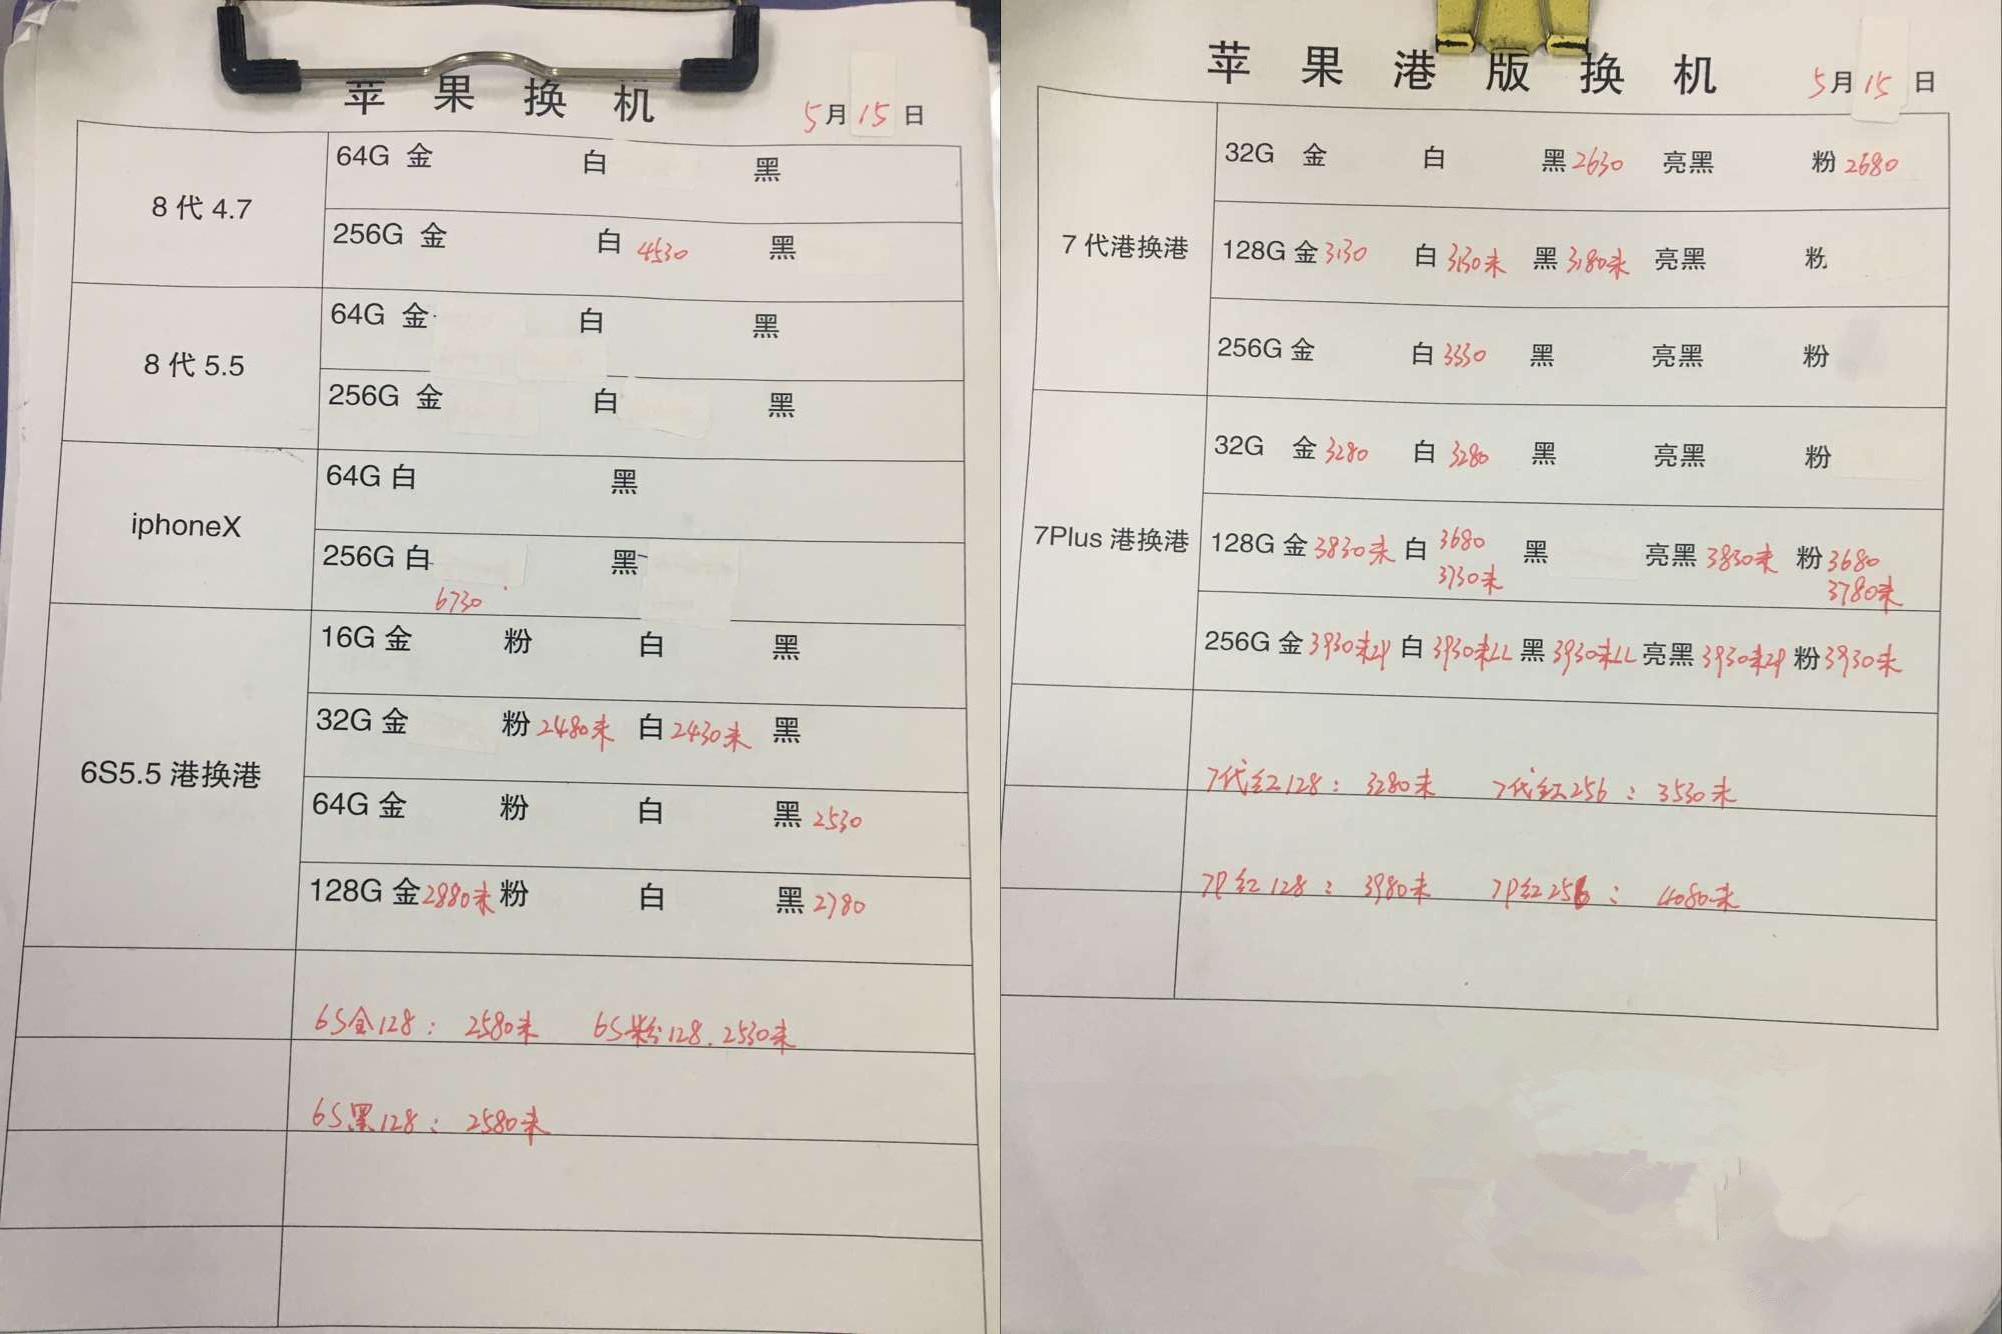 苹果换机
5月15日
8代4.7
64G 金 白 黑
256G 金 白 4530 黑
8代5.5
64G 金 白 黑
256G 金 白 黑
iphoneX
64G 白 黑
256G 白 黑
6730
6S5.5 港换港
16G 金 粉 白 黑
32G 金 粉 2480未 白 2430未 黑
64G 金 粉 白 黑 2530
128G 金 2880未 粉 白 黑 2780
6S金128: 2580未 6S粉128. 2530未
6S黑128: 2580未
苹果港版换机
5月15日
7代港换港
32G 金 白 黑 2630 亮黑 粉 2680
128G 金 3130 白 3130未 黑 3180未 亮黑 粉
256G 金 白 3330 黑 亮黑 粉
7Plus 港换港
32G 金 3280 白 3280 黑 亮黑 粉
128G 金 3830未 白 3680 黑 亮黑 3830未 粉 3680
3730未 3780未
256G 金 3930未ZP 白 3930未LL 黑 3930未LL 亮黑 3930未ZP 粉 3930未
7代红128: 3280未 7代红256: 3530未
7P红128: 3980未 7P红256: 4080未